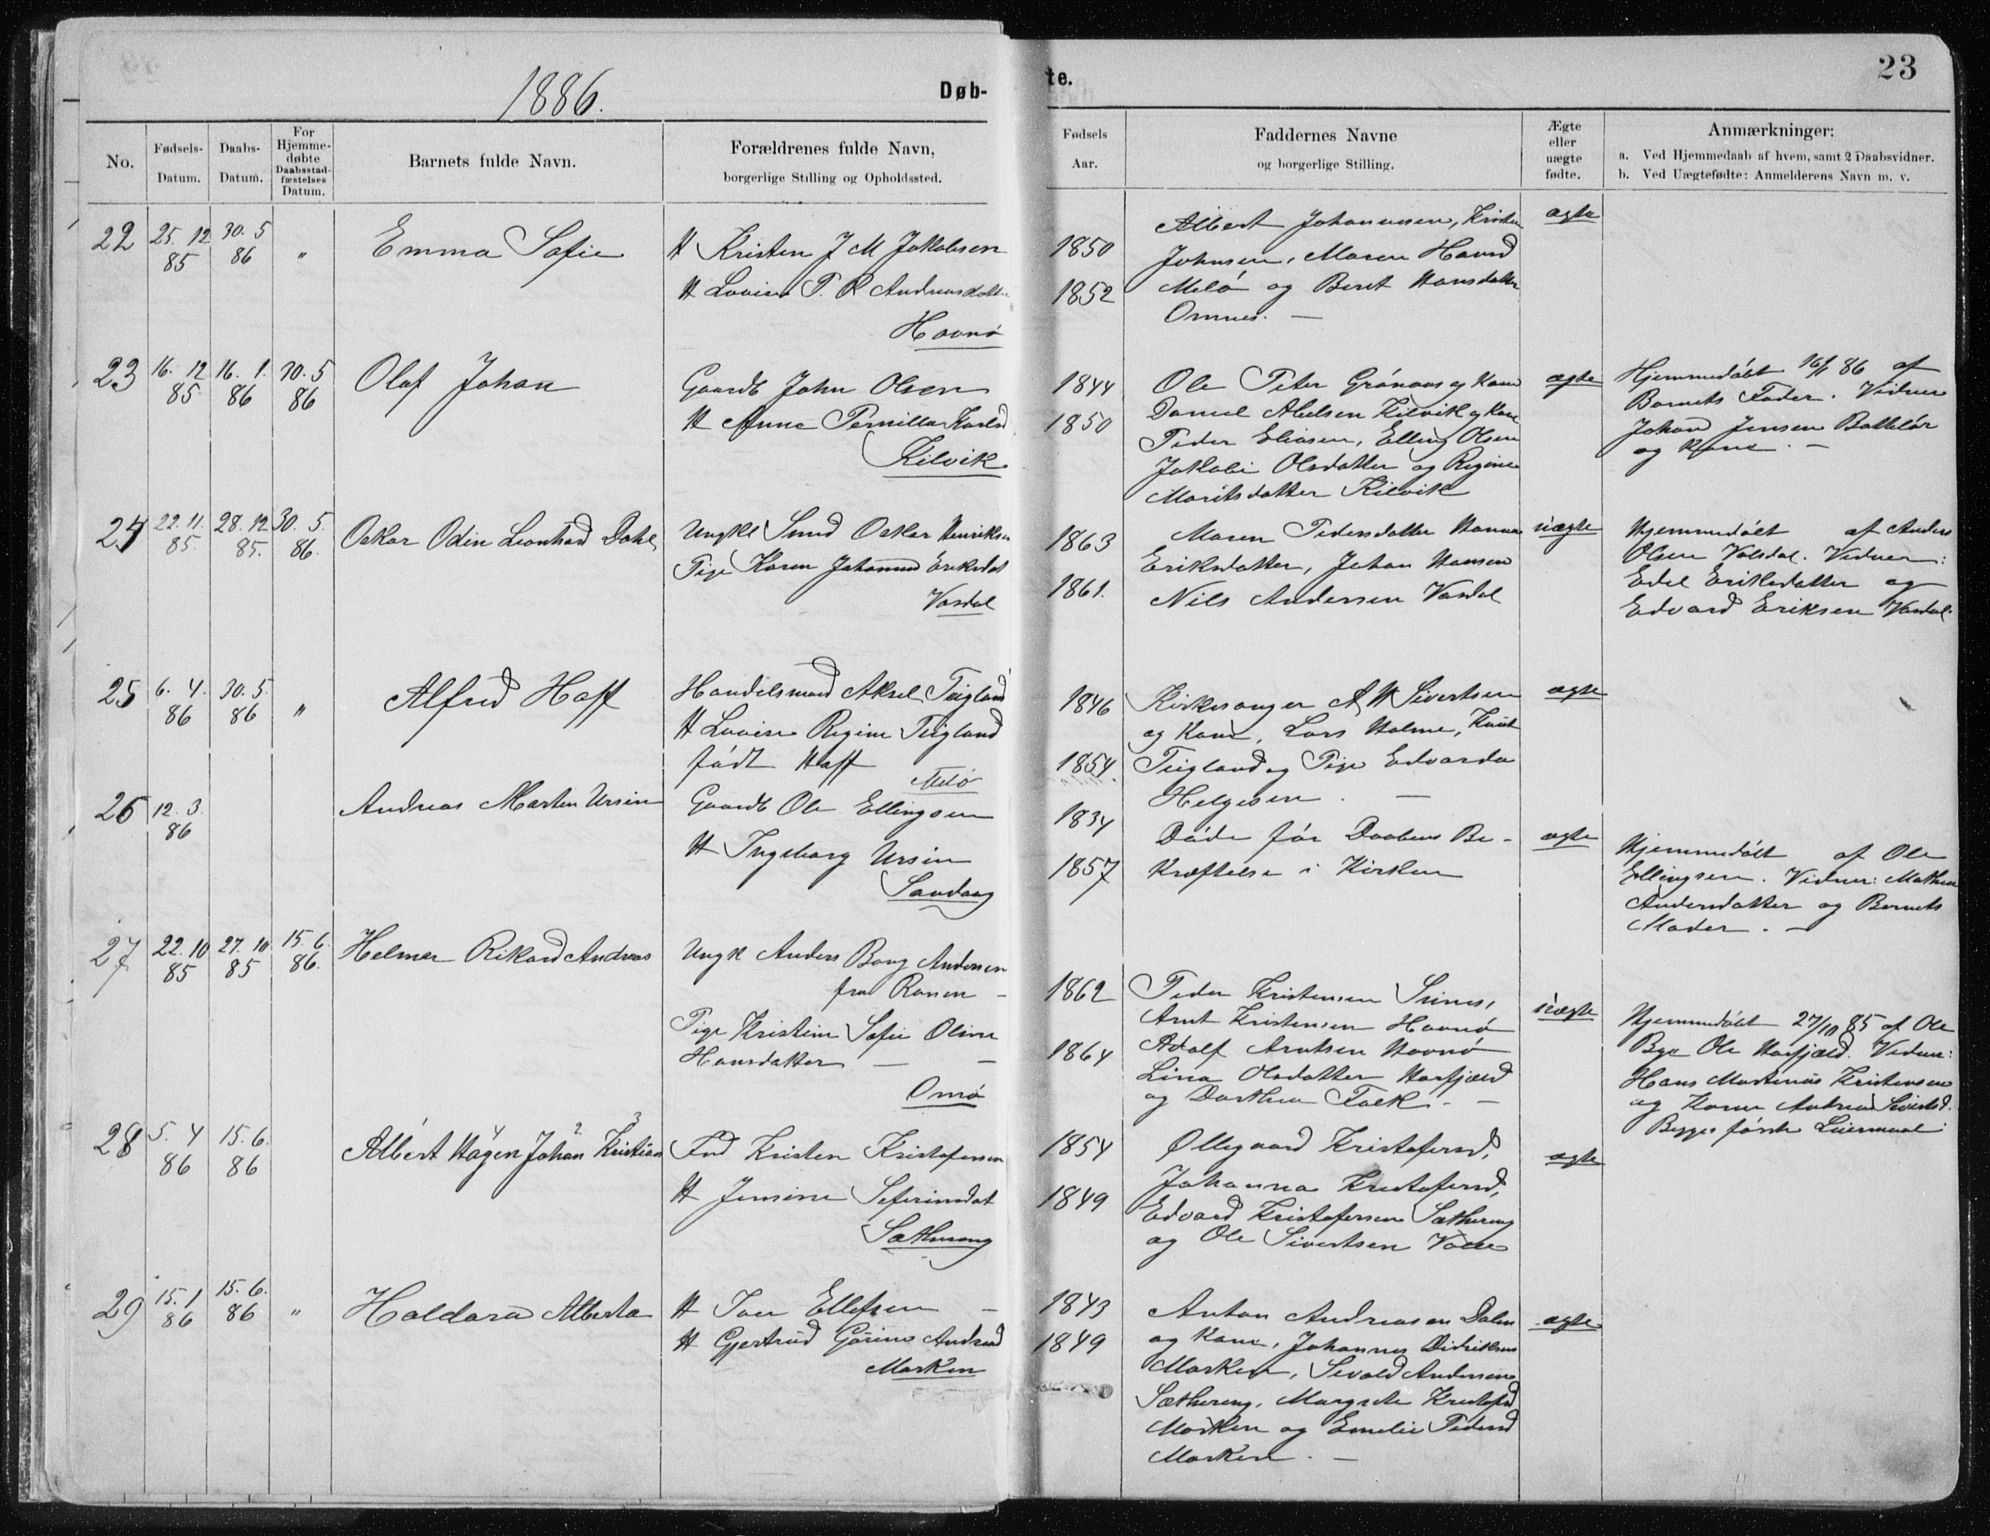 1886.
Døb-
te.
23
No.
Fødsels-
Datum.
Daabs-
Datum.
For
Hjemme-
døbte
Daabsstad-
fæstelses
Datum.
Barnets fulde Navn.
Forældrenes fulde Navn,
borgerlige Stilling og Opholdssted.
Fødsels
Aar.
Faddernes Navne
og borgerlige Stilling.
Ægte
eller
uægte
fødte.
Anmærkninger:
a. Ved Hjemmedaab af hvem, samt 2 Daabsvidner.
b. Ved Uægtefødte: Anmelderens Navn m. v.
22
25. 12
85
30. 5
86
"
Emma Sofie
H Kristen J M Jakobsen
H Lovise P. R Andreasdatter
Havnø
1850
1852
Albert Johannesen,
Johnsen, Maren Hansd
Melø og Beret Hansdatter
Omnes. —
ægte
23
16. 12
85
16. 1.
86
30. 5
86
Olaf Johan
Gaardb John Olsen
H Anne Pernilla Karlsd
Kilvik
1844
1850
Ole Peter Grønaas og Kone
Daniel Abelsen Kilvik og Kone
Peder Eliasen, Elling Olsen
Jakobi Olsdatter og Regine
Moritsdatter Kilvik
ægte
Hjemmedøbt 16/1 86 af
Barnets Fader. Vidner
Johan Jensen
og Kone. —
24
22. 11.
85.
28. 12
85.
30. 5.
86.
Oskar Odin Leonhard Dahl
Ungkl Smed Oskar Henriksen
Pige Karen Johanna Eriksdat
Vasdal
1863
1861.
Maren Pedersdatter Hanna
Eriksdatter, Johan Hansen
Nils Andersen Vasdal
uægte
Hjemmedøbt af Anders
Olsen Valsdal. Vidner:
Edel Eriksdatter og
Edvard Eriksen Vasdal.
25
6. 4.
86
30. 5.
86
"
Alfred Haff
Handelsmand Aksel Teigland
H Lovise Regine Teigland
født Haff
Melø
1846
1854.
Kirkesanger A H Sivertsen
og Kone, Lars Holme, Knut
Teigland og Pige Edvarda
Helgesen. —
ægte
26
12. 3.
86
Andreas Marten Ursin
Gaardb Ole Ellingsen
H Ingeborg Ursin
Sandaag
1834
1857
Døde før Daabens Be-
kræftelse i Kirken
ægte
Hjemmedøbt af Ole
Ellingsen. Vidner: Mathea
Andersdatter og Barnets
Moder. —
27
22. 10
85
27. 10
85
15. 6.
86.
Helmer Rikard Andreas
Ungk Anders Bang Andersen
fra Ranen —
Pige Kristine Sofie Oline
Hansdatter — —
Omø
1862
1864
Peder Kristensen
Arnt Kristensen Havnø
Adolf Arntsen Havnø
Lina Olsdatter Harfjæld
og Dorthea Falk. —
uægte
Hjemmedøbt 27/10 85 af Ole
Ole Harfjæld. Vidner:
Hans Martinus Kristensen
og Karen Antrea Sivertsd.
Begges første Leiermaal
28
5. 4
86
15. 6.
86
4 2 3
Albert Hagen Johan Kristian
Ind Kristen Kristofersen
H Jensine Seferinsdat
Sætherang
1854
1849
Øllegaard Kristofersd,
Johanna Kristofersd,
Edvard Kristofersen Sætherang
og Ole Sivertsen
ægte
29
15. 1
86
15. 6.
86
"
Haldora Alberta
H Iver Ellefsen —
H Gjertrud Gurine Andersd
Marken
1843
1849
Anton Andreasen Dalen
og Kone, Johannes Didriksen
Marken, Sevald Andersen
Sætherang, Margrete Kristofsd
Marken og Emelie Pedersd
Marken —
ægte